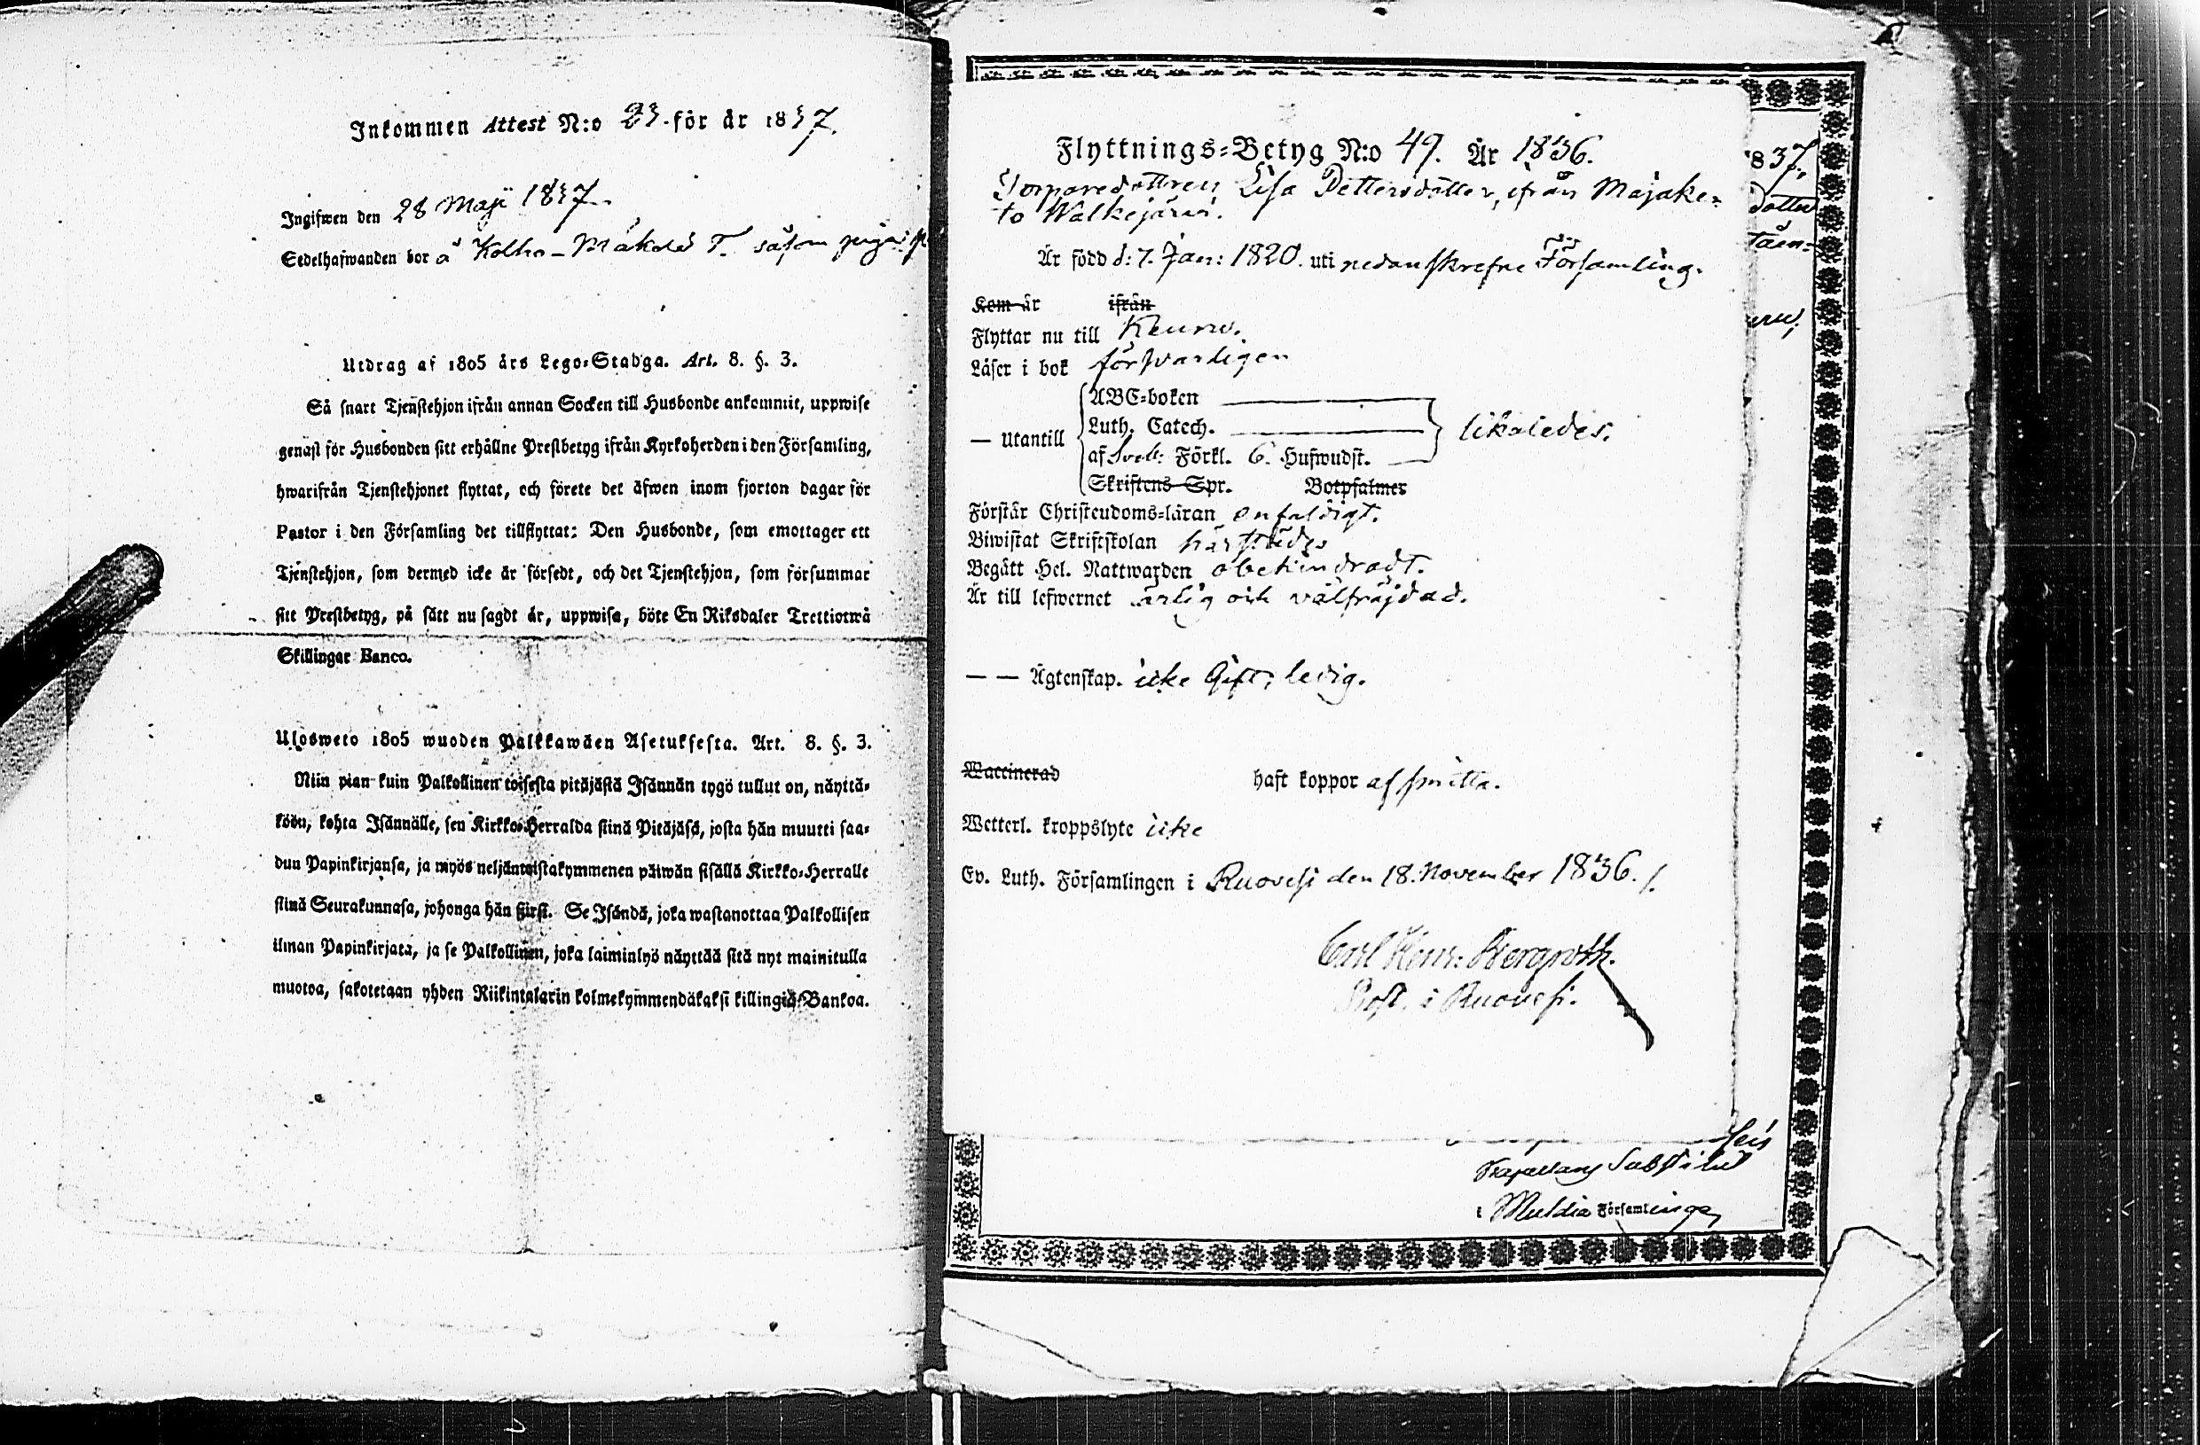 Inkommen Attest N:o 23. för år 1837.
Ingifwen den 28 Maji 1837.
Sedelhafwanden bor å Kolho-Mäkelä T. såsom piga
Utdrag af 1805 års Lego-Stadga. Art. 8. §. 3.
Så snart Tjenstehjon ifrån annan Socken till Husbonde ankommit, uppwise
genast för Husbonden sitt erhållne Prestbetyg ifrån Kyrkoherden i den Församling,
hwarifrån Tjenstehjonet flyttat, och förete det äfwen inom fjorton dagar för
Pastor i den Församling det tillflyttat: Den Husbonde, som emottager ett
Tjenstehjon, som dermed icke är försedt, och det Tjenstehjon, som försummar
sitt Prestbetyg, på sätt nu sagdt är, uppwisa, böte En Riksdaler Trettiotwå
Skillingar Banco.
Ulosweto 1805 wuoden Palkkawäen Asetuksesta. Art. 8. §. 3.
Niin pian kuin Palkollinen toisesta pitäjästä Isännän tygö tullut on, näyttä-
köön, kohta Isännälle, sen Kirkko-Herralda siinä Pitäjäsä, josta hän muutti saa-
dun Papinkirjansa, ja myös neljäntoistakymmenen päiwän sisällä Kirkko-Herralle
siinä Seurakunnasa, johonga hän siirst. Se Isändä, joka wastanottaa Palkollisen
ilman Papinkirjata, ja se Palkollinen, joka laiminlyö näyttää sitä nyt mainitulla
muotoa, sakotetaan yhden Riikintalarin kolmekymmendäkaksi killingiä Bankoa.
Flyttnings-Betyg N:o 49. År 1836.
Torparedottren Lisa Pettersdotter, ifrån Majake-
to Walkejärwi.
Är född d: 7. Jan: 1820. uti nedanskrefne Församling.
Kom år ifrån
Flyttar nu till Keuru.
Läser i bok försvarligen
ABC-boken
Luth. Catech.
— Utantill likaledes.
af Sveb: Förkl. 6. Hufwudst.
Skriftens Spr. Botpsalmer
Förstår Christendoms-läran enfaldigt.
Biwistat Skriftskolan härstädes
Begått Hel. Nattwarden obehindradt.
Är till lefwernet ärlig och välfräjdad.
— — Ägtenskap. icke Gift, ledig.
Waccinerad haft koppor af smitta.
Wetterl. kroppslyte icke
Ev. Luth. Församlingen i Ruovesi den 18. November 1836.
Carl Henr: Bergroth.
Prost. i Ruovesi.
1837,
dotter
Substitut
i Multia Församlinge